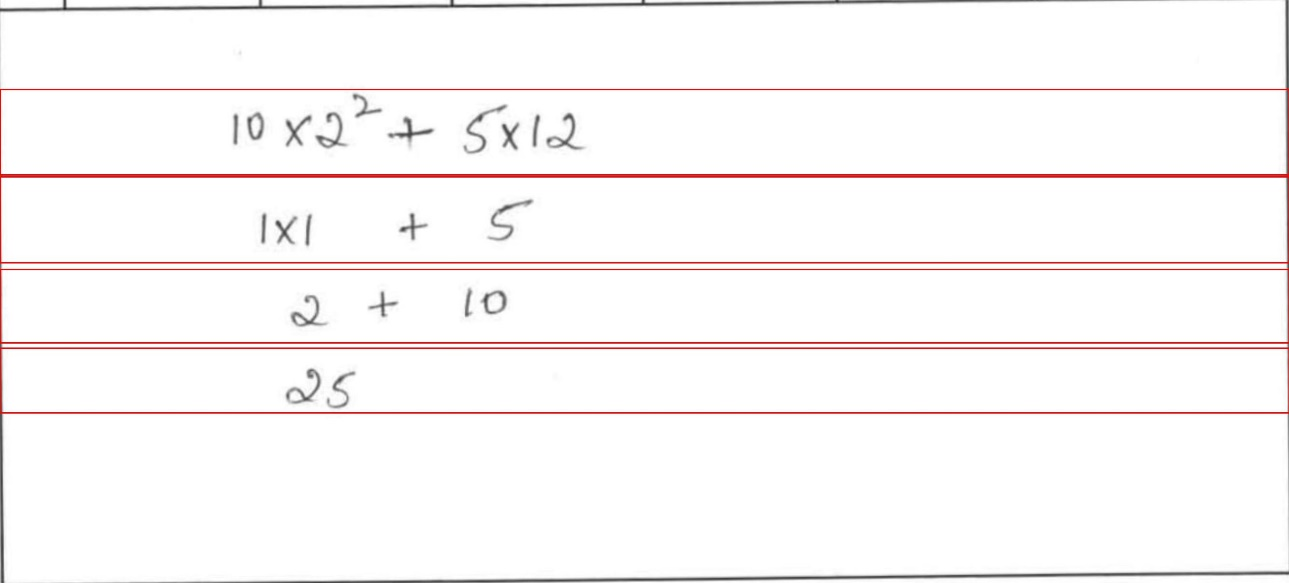 10 × 2² + 5 × 12
1 × 1 + 5
2 + 10
25